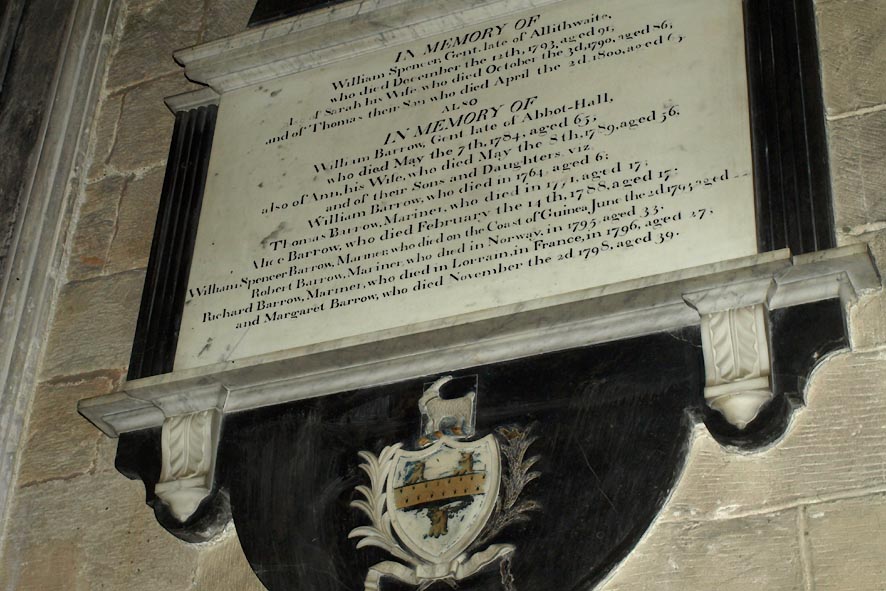 IN MEMORY OF
William Spencer, Gent. late of Allithwaite,
who died December the 12th, 1793, aged 91;
Also of Sarah his Wife who died October the 3d, 1790, aged 86;
and of Thomas their Son who died April the 2d, 1800, aged 63.
ALSO
IN MEMORY OF
William Barrow, Gent late of Abbot-Hall,
who died May the 7th, 1784, aged 65;
also of Ann, his Wife, who died May the 8th, 1789, aged 56,
and of their Sons and Daughters viz
William Barrow, who died in 1764, aged 6;
Thomas Barrow, Mariner, who died in 1771, aged 17;
Alice Barrow, who died February the 14th, 1788, aged 17.
William Spencer Barrow, Mariner, who died on the Coast of Guinea June the 2d, 1793, aged
Robert Barrow, Mariner, who died in Norway, in 1795 aged 33;
Richard Barrow, Mariner, who died in Lorrain, in France, in 1796, aged 27;
and Margaret Barrow, who died November the 2d 1798, aged 39.